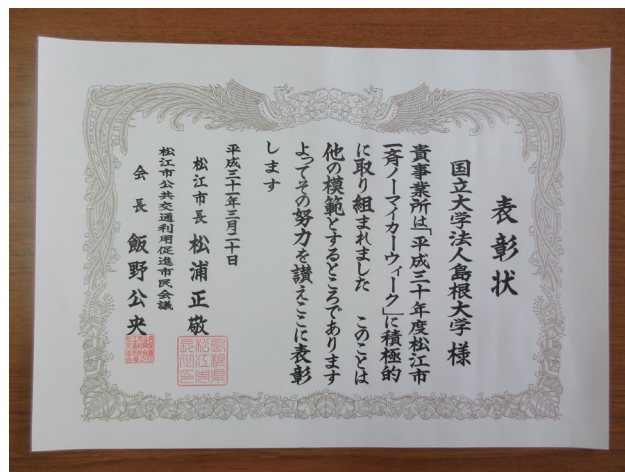 表彰状
国立大学法人島根大学 様
貴事業所は「平成三十年度松江市
一斉ノーマイカーウィーク」に積極的
に取り組まれました このことは
他の模範とするところであります
よってその努力を讃えここに表彰
します
平成三十一年三月二十日
松江市長 松浦正敬
松江市公共交通利用促進市民会議
会長 飯野公央